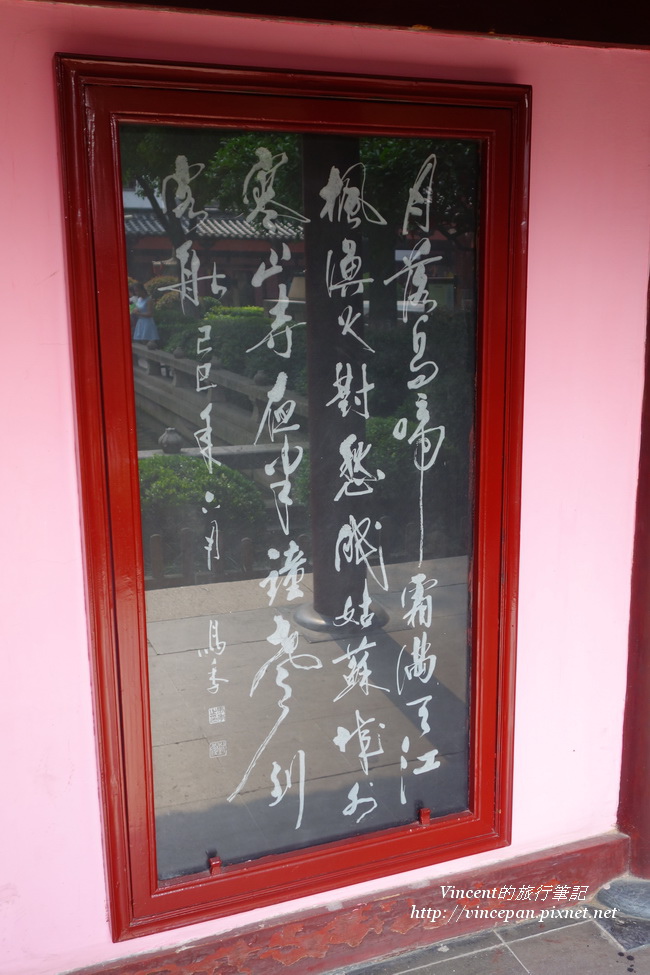 月落烏啼霜滿天江
楓漁火對愁眠姑蘇城外
寒山寺夜半鐘聲到
客船
己巳年六月
馬季
Vincent的旅行筆記
http://vincepan.pixnet.net